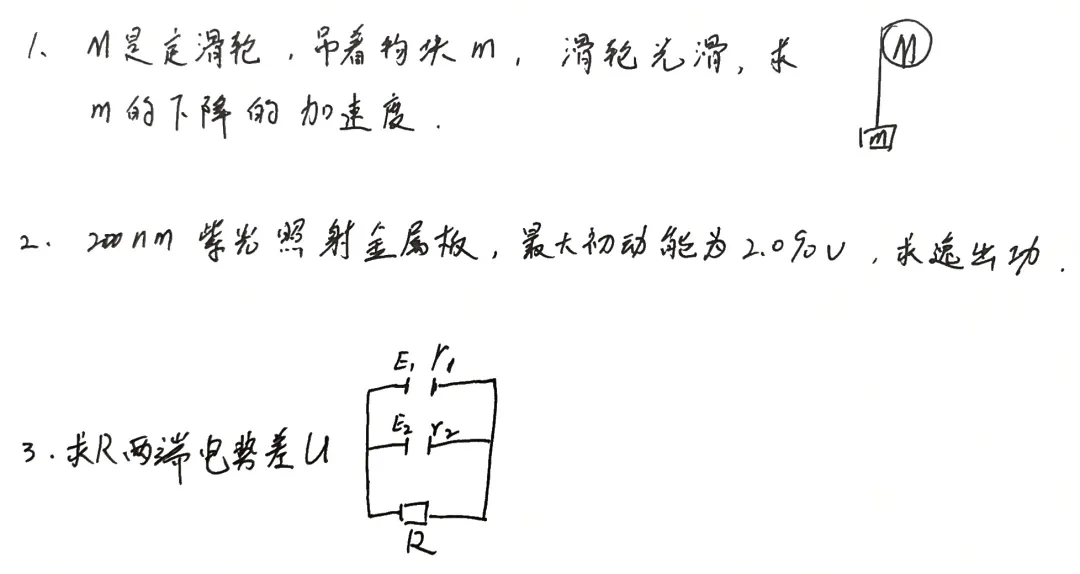 1、M是定滑轮,吊着物块m,滑轮光滑,求
m的下降的加速度.
M
m
2. 200nm 紫光照射金属板,最大初动能为2.0eV,求逸出功.
E₁ r₁
E₂ r₂
3.求R两端电势差U
R